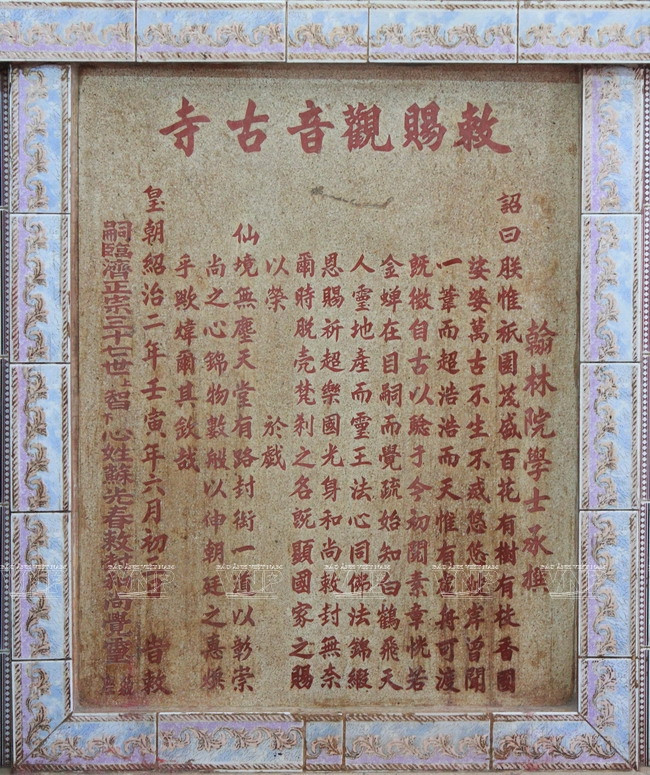 敕賜觀音古寺
翰林院學士承撰
詔曰朕惟祇園茂盛百花有樹有枝香國
娑婆萬古不生不滅悠悠
岸曾聞
一葦而超浩浩而天惟有虛舟可渡
既微自古以
于今初聞素章恍若
金蟬在目嗣而覺疏始知白鶴飛天
人靈地產而靈王法心同佛法錦
恩賜祈超樂國光身和尚敕封無奈
爾時脫壳梵刹之名既顯國家之賜
以榮 於戲
仙境無塵天堂有路封銜一道以彰崇
尚之心錦物數般以伸朝廷之惠煥
乎歟煒爾其欽哉
皇朝紹治二年壬寅年六月初
嗣臨濟正宗三十七世上智下心姓蘇光春敕
和尚覺靈